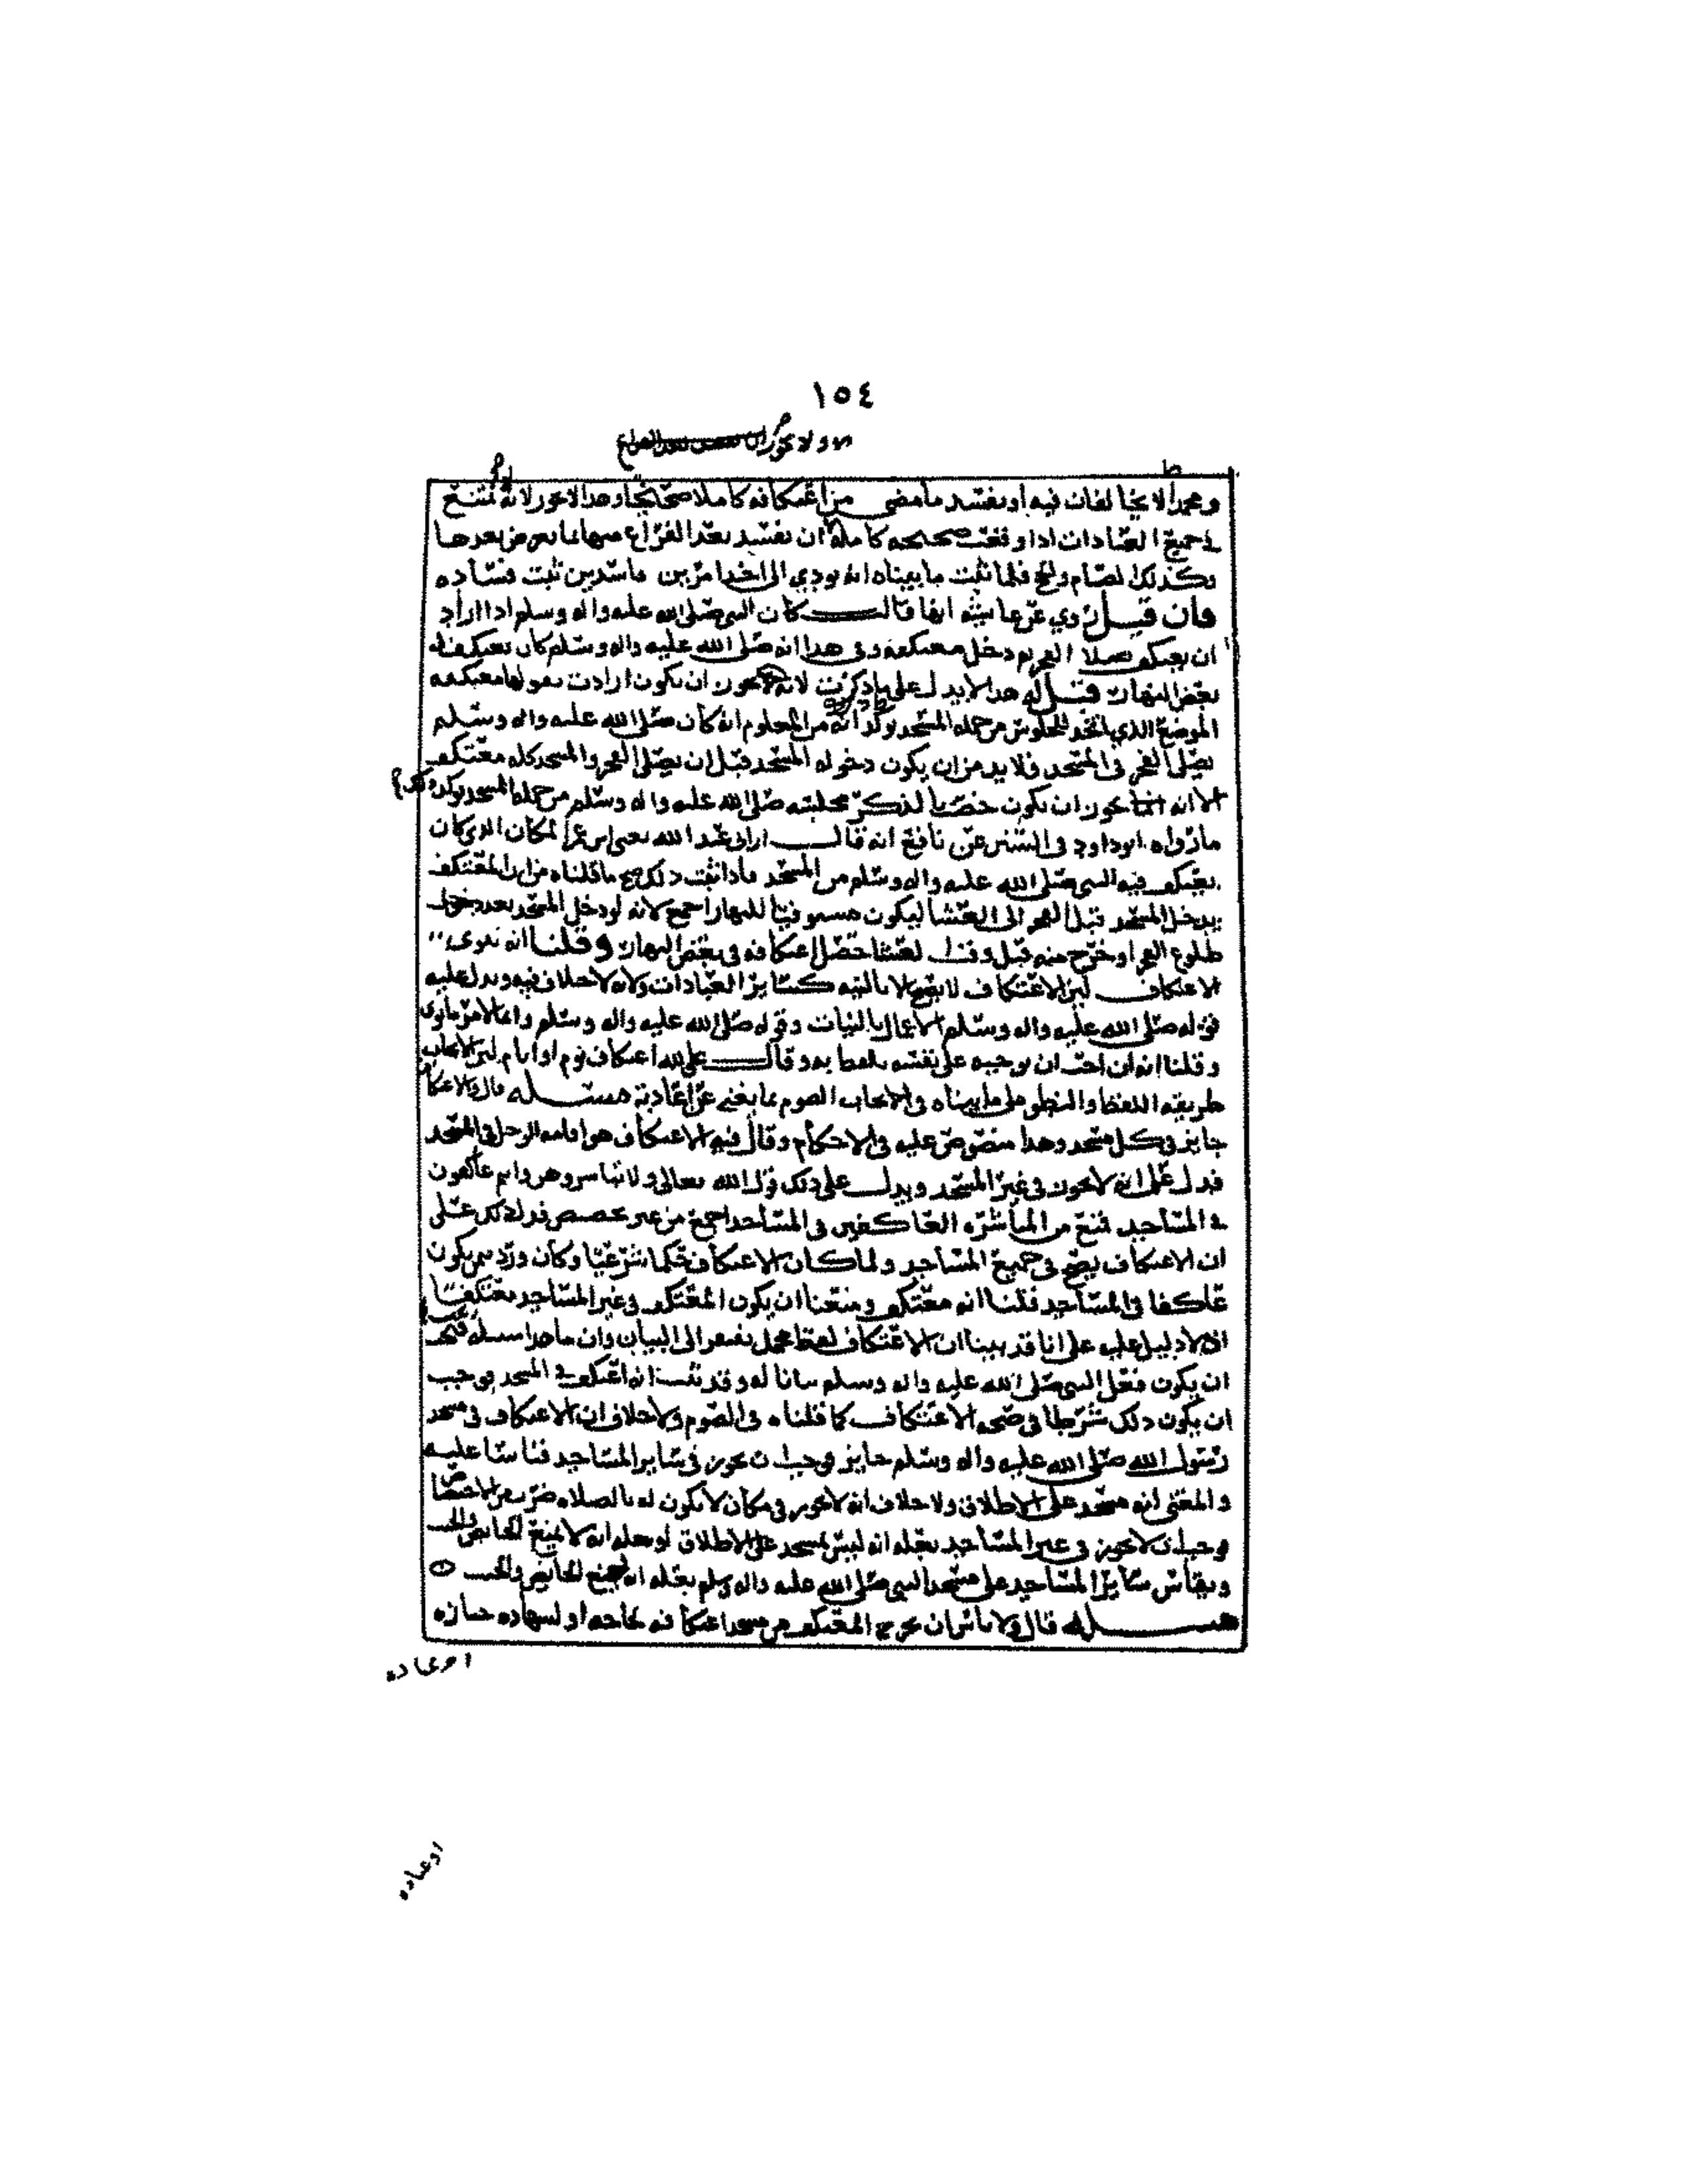 ١٥٤
ومحمدا لا يخالفان فيه او يفسد ما مضى من اعتكافه كاملا صحيحا وهذا لا يجوز لانه يمتنع
في جميع العبادات اذا وقعت صحيحه كامله ان تفسد بعد الفراغ منها بما يعرض بعدها
وكذلك الصيام والحج فلما ثبت ما بيناه انه يودي الى احد امرين فاسدين ثبت فساده
فان قيل روي عن عايشه انها قالت كان النبي صلى الله عليه واله وسلم اذا اراد
ان يعتكف صلا الفجر ثم دخل معتكفه وفي هذا انه صلى الله عليه واله وسلم كان يعتكف
بعض النهار قيل له هذا لا يدل على ما ذكرت لانه يجوز ان يكون ارادت بقولها معتكفه
الموضع الذي اتخذ للجلوس من جمله المسجد يوكد انه من المعلوم انه كان صلى الله عليه واله وسلم
يصلي الفجر في المسجد فلا بد من ان يكون دخوله المسجد قبل ان يصلي الفجر والمسجد كله معتكف
الا انه انما يجوز ان يكون خصت بالذكر مجلسه صلى الله عليه واله وسلم من جمله المسجد يوكد ذلك
ما رواه ابو داود في السنن عن نافع انه قال اراني عبد الله يعني ابن عمر المكان الذي كان
يعتكف فيه النبي صلى الله عليه واله وسلم من المسجد فاذا ثبت ذلك صح ما قلناه من ان المعتكف
يدخل المسجد قبل الفجر الى العشا ليكون مستوفيا للنهار اجمع لانه لو دخل المسجد بعد
طلوع الفجر او خرج منه قبل وقت العشا حصل اعتكافه في بعض النهار وقلنا انه ينوي
الاعتكاف لان الاعتكاف لا يصح الا بالنيه كساير العبادات ولانه لا خلاف فيه ويدل عليه
قوله صلى الله عليه واله وسلم الاعمال بالنيات وقوله صلى الله عليه واله وسلم وانما لامرئ ما نوى
وقلنا انه ان احب ان يوجبه على نفسه تلفظ به وقال علي لله اعتكاف يوم او ايام لان الايجاب
طريقه اللفظ والنطق على ما بيناه في ايجاب الصوم بما يغني عن اعادته مسئله قال والاعتكاف
جايز في كل مسجد وهذا منصوص عليه في الاحكام وقال فيه الاعتكاف هو اقامه الرجل في المسجد
فدل على انه لا يجوز في غير المسجد ويدل على ذلك قول الله تعالى ولا تباشروهن وانتم عاكفون
في المساجد فمنع من المباشره العاكفين في المساجد اجمع من غير تخصيص فدل ذلك على
ان الاعتكاف يصح في جميع المساجد ولما كان الاعتكاف حكما شرعيا وكان ورد فيمن يكون
عاكفا في المساجد قلنا انه معتكف ومنعنا ان يكون المعتكف في غير المساجد معتكفا
اذ لا دليل عليه على انا قد بينا ان الاعتكاف لفظ مجمل يفتقر الى البيان وان ما هذا سبيله فيجب
ان يكون فعل النبي صلى الله عليه واله وسلم بيانا له وقد ثبت انه اعتكف في المسجد فوجب
ان يكون ذلك شرطا في صحه الاعتكاف كما قلناه في الصوم ولا خلاف ان الاعتكاف في مسجد
رسول الله صلى الله عليه واله وسلم جايز فوجب ان يجوز في ساير المساجد قياسا عليه
والمعنى انه مسجد على الاطلاق ولا خلاف انه لا يجوز في مكان لا يكون له بالصلاه ضرب من الاختصاص
فوجب ان لا يجوز في غير المساجد بعله انه ليس بمسجد على الاطلاق او بعله انه لا يمنع الحايض والجنب
ويقاس ساير المساجد على مسجد النبي صلى الله عليه واله وسلم بعله انه يمنع الحايض والجنب
مسئله قال ولا باس ان يخرج المعتكف من مسجد اعتكافه لحاجه او لشهاده جنازه
او عياده
او عياده